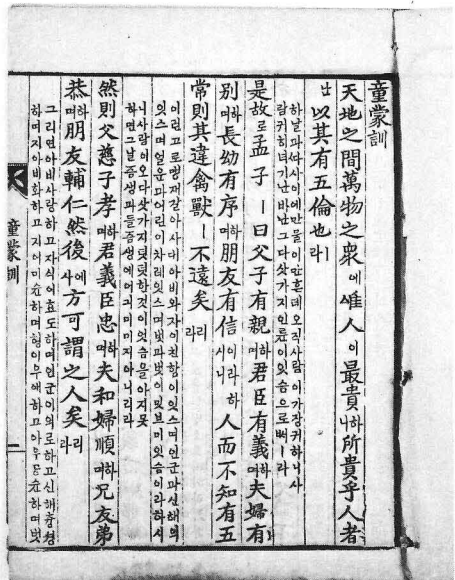 童蒙訓
天地之間萬物之衆에唯人이最貴하니所貴乎人者
난以其有五倫也라
하날과따사이에만물이만흔데오직사람이가장귀하니사
람귀히녀기난바난그다삿가지인륜이잇슴으로뻐ㅣ라
是故로孟子ㅣ曰父子有親하며君臣有義하며夫婦有
別하며長幼有序하며朋友有信이라하시니人而不知有五
常則其違禽獸ㅣ不遠矣리라
이런고로맹재갈아사대아비와자이친함이잇스며인군과신해의
잇스며얼운과어린이차례잇스며벗과벗이밋브미잇슴이라하시
니사람이오다삿가지떳떳한것이잇슴을아지못
하면그날즘생과뜰즘생에어긔미머지아니리라
然則父慈子孝하며君義臣忠하며夫和婦順하며兄友弟
恭하며朋友輔仁然後에사方可謂之人矣리라
그리면아비사랑하고자식이효도하며인군이의로하고신해츙셩
하며지아비화하고지어미슌하며형이우애하고아우공슌하며벗
童蒙訓
一